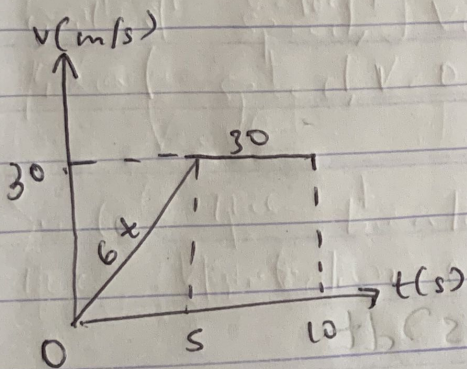 v(m/s)
30
30
6x
t(s)
0
5
10